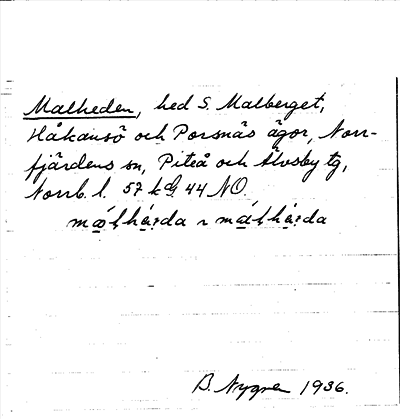 Malheden, hed S. Malberget,
Håkansö och Porsnäs ägor, Norr-
fjärdens sn, Piteå och Älvsby tg,
Norrb. l. 57 kg 44 NO.
B. Nygren 1936.